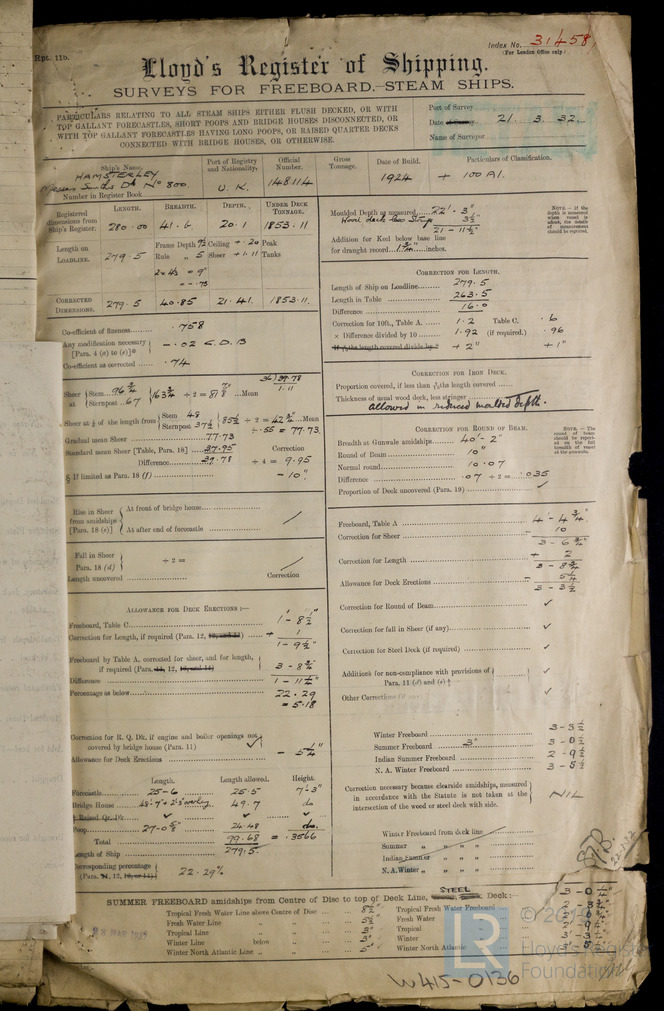 Rpt. 11b.
Index No. 31458
(For London Office only.)
Lloyd's Register of Shipping.
SURVEYS FOR FREEBOARD.—STEAM SHIPS.
PARTICULARS RELATING TO ALL STEAM SHIPS EITHER FLUSH DECKED, OR WITH
TOP GALLANT FORECASTLES, SHORT POOPS AND BRIDGE HOUSES DISCONNECTED, OR
WITH TOP GALLANT FORECASTLES HAVING LONG POOPS, OR RAISED QUARTER DECKS
CONNECTED WITH BRIDGE HOUSES, OR OTHERWISE.
Port of Survey
Date of Survey 21 . 3 . 32
Name of Surveyor
Ship's Name. Port of Registry and Nationality. Official Number. Gross Tonnage. Date of Build. Particulars of Classification.
HAMSTERLEY
No 800. U.K. 148114 1924 + 100 A1.
Number in Register Book
Registered dimensions from Ship's Register.
LENGTH. BREADTH. DEPTH. UNDER DECK TONNAGE.
280.00 41.6 20.1 1853.11
Length on LOADLINE. 279.5
Frame Depth 7½ Ceiling + .20 Peak
Rule „ 5 Sheer + 1.11 Tanks
= - .75
CORRECTED DIMENSIONS. 279.5 40.85 21.41 1853.11
Co-efficient of fineness .758
Any modification necessary [Para. 4 (a) to (e)]* - .02 C.D.B
Co-efficient as corrected .74
Sheer at Stem 96¾ Sternpost 67 163¾ ÷ 2 = 81⅞ Mean
36)39.78
1.11
Sheer at ⅛ of the length from Stem 48 Sternpost 37½ 85½ ÷ 2 = 42¾ Mean
÷ .55 = 77.73
Gradual mean Sheer 77.73
Standard mean Sheer [Table, Para. 18] 37.95 Correction
Difference 39.78 ÷ 4 = 9.95
§ If limited as Para. 18 (f) - 10"
Rise in Sheer from amidships [Para. 18 (e)]
At front of bridge house
At after end of forecastle
Fall in Sheer Para. 18 (d) ÷ 2 =
Length uncovered Correction
ALLOWANCE FOR DECK ERECTIONS:—
Freeboard, Table C 1 - 8½"
Correction for Length, if required (Para. 12, 13, and 14) + 1
1 - 9½"
Freeboard by Table A, corrected for sheer, and for length,
if required (Para. 11, 12, 13, and 14) 3 - 8¾"
Difference 1 - 11¼"
Percentage as below 22.29
= 5.18
Correction for R. Q. Dk. if engine and boiler openings not
covered by bridge house (Para. 11) ✓
Allowance for Deck Erections - 5¼"
Length. Length allowed. Height.
Forecastle 25-6 25.5 7'-3"
Bridge House 49.7 do
‡ Raised Qr. Dk. ✓ ✓ ✓
Poop 27-0⅝ 24.48 do.
Total 99.68 = .3566
Length of Ship 279.5
Corresponding percentage (Para. 11, 12, 13, or 14) 22.29%
Moulded Depth as measured 22' - 3"
3½"
21 - 11½"
Addition for Keel below base line
for draught record inches.
NOTE.—If the depth is measured when vessel is afloat, the details of measurement should be reported.
CORRECTION FOR LENGTH.
Length of Ship on Loadline 279.5
Length in Table 263.5
Difference 16.0
Correction for 10ft., Table A. 1.2 Table C. .6
× Difference divided by 10 1.92 (if required.) .96
If ⁶⁄₁₀ths length covered divide by 2 + 2" + 1"
CORRECTION FOR IRON DECK.
Proportion covered, if less than ⁷⁄₁₀ths length covered
Thickness of usual wood deck, less stringer
allowed in reduced moulded depth.
CORRECTION FOR ROUND OF BEAM.
Breadth at Gunwale amidships 40' - 2"
Round of Beam 10"
Normal round 10.07
Difference .07 ÷ 2 = .035
Proportion of Deck uncovered (Para. 19) ✓
NOTE.—The round of beam should be reported on the full breadth of vessel at the gunwale.
Freeboard, Table A 4' - 4¾"
Correction for Sheer - 10
3 - 6¾"
Correction for Length + 2
3 - 8¾
Allowance for Deck Erections - 5¼
3 - 3½
Correction for Round of Beam ✓
Correction for fall in Sheer (if any) ✓
Correction for Steel Deck (if required) ✓
Additions for non-compliance with provisions of Para. 11 (d) and (e) † ✓
Other Corrections (if ✓
Winter Freeboard 3 - 3½
Summer Freeboard 3" 3 - 0½
Indian Summer Freeboard 2 - 9½
N. A. Winter Freeboard 3 - 5½
Correction necessary because clearside amidships, measured
in accordance with the Statute is not taken at the
intersection of the wood or steel deck with side. NIL
Winter Freeboard from deck line
Summer „ „ „ „
Indian Summer „ „ „
N. A. Winter „ „ „
SUMMER FREEBOARD amidships from Centre of Disc to top of Deck Line, STEEL Deck:—
Tropical Fresh Water Line above Centre of Disc 8½"
Fresh Water Line „ „ 5½"
Tropical Line „ „ 3"
Winter Line below „ 3"
Winter North Atlantic Line „ „ 5"
Tropical Fresh Water Freeboard
Fresh Water „
Tropical „
Winter „
Winter North Atlantic „
28 MAR 1932
LR
Lloyd's Register
Foundation
W415-0136